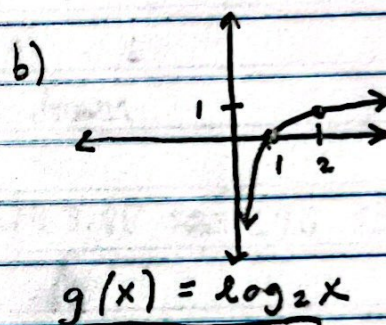 b)
1
1 2
g(x) = log₂ x